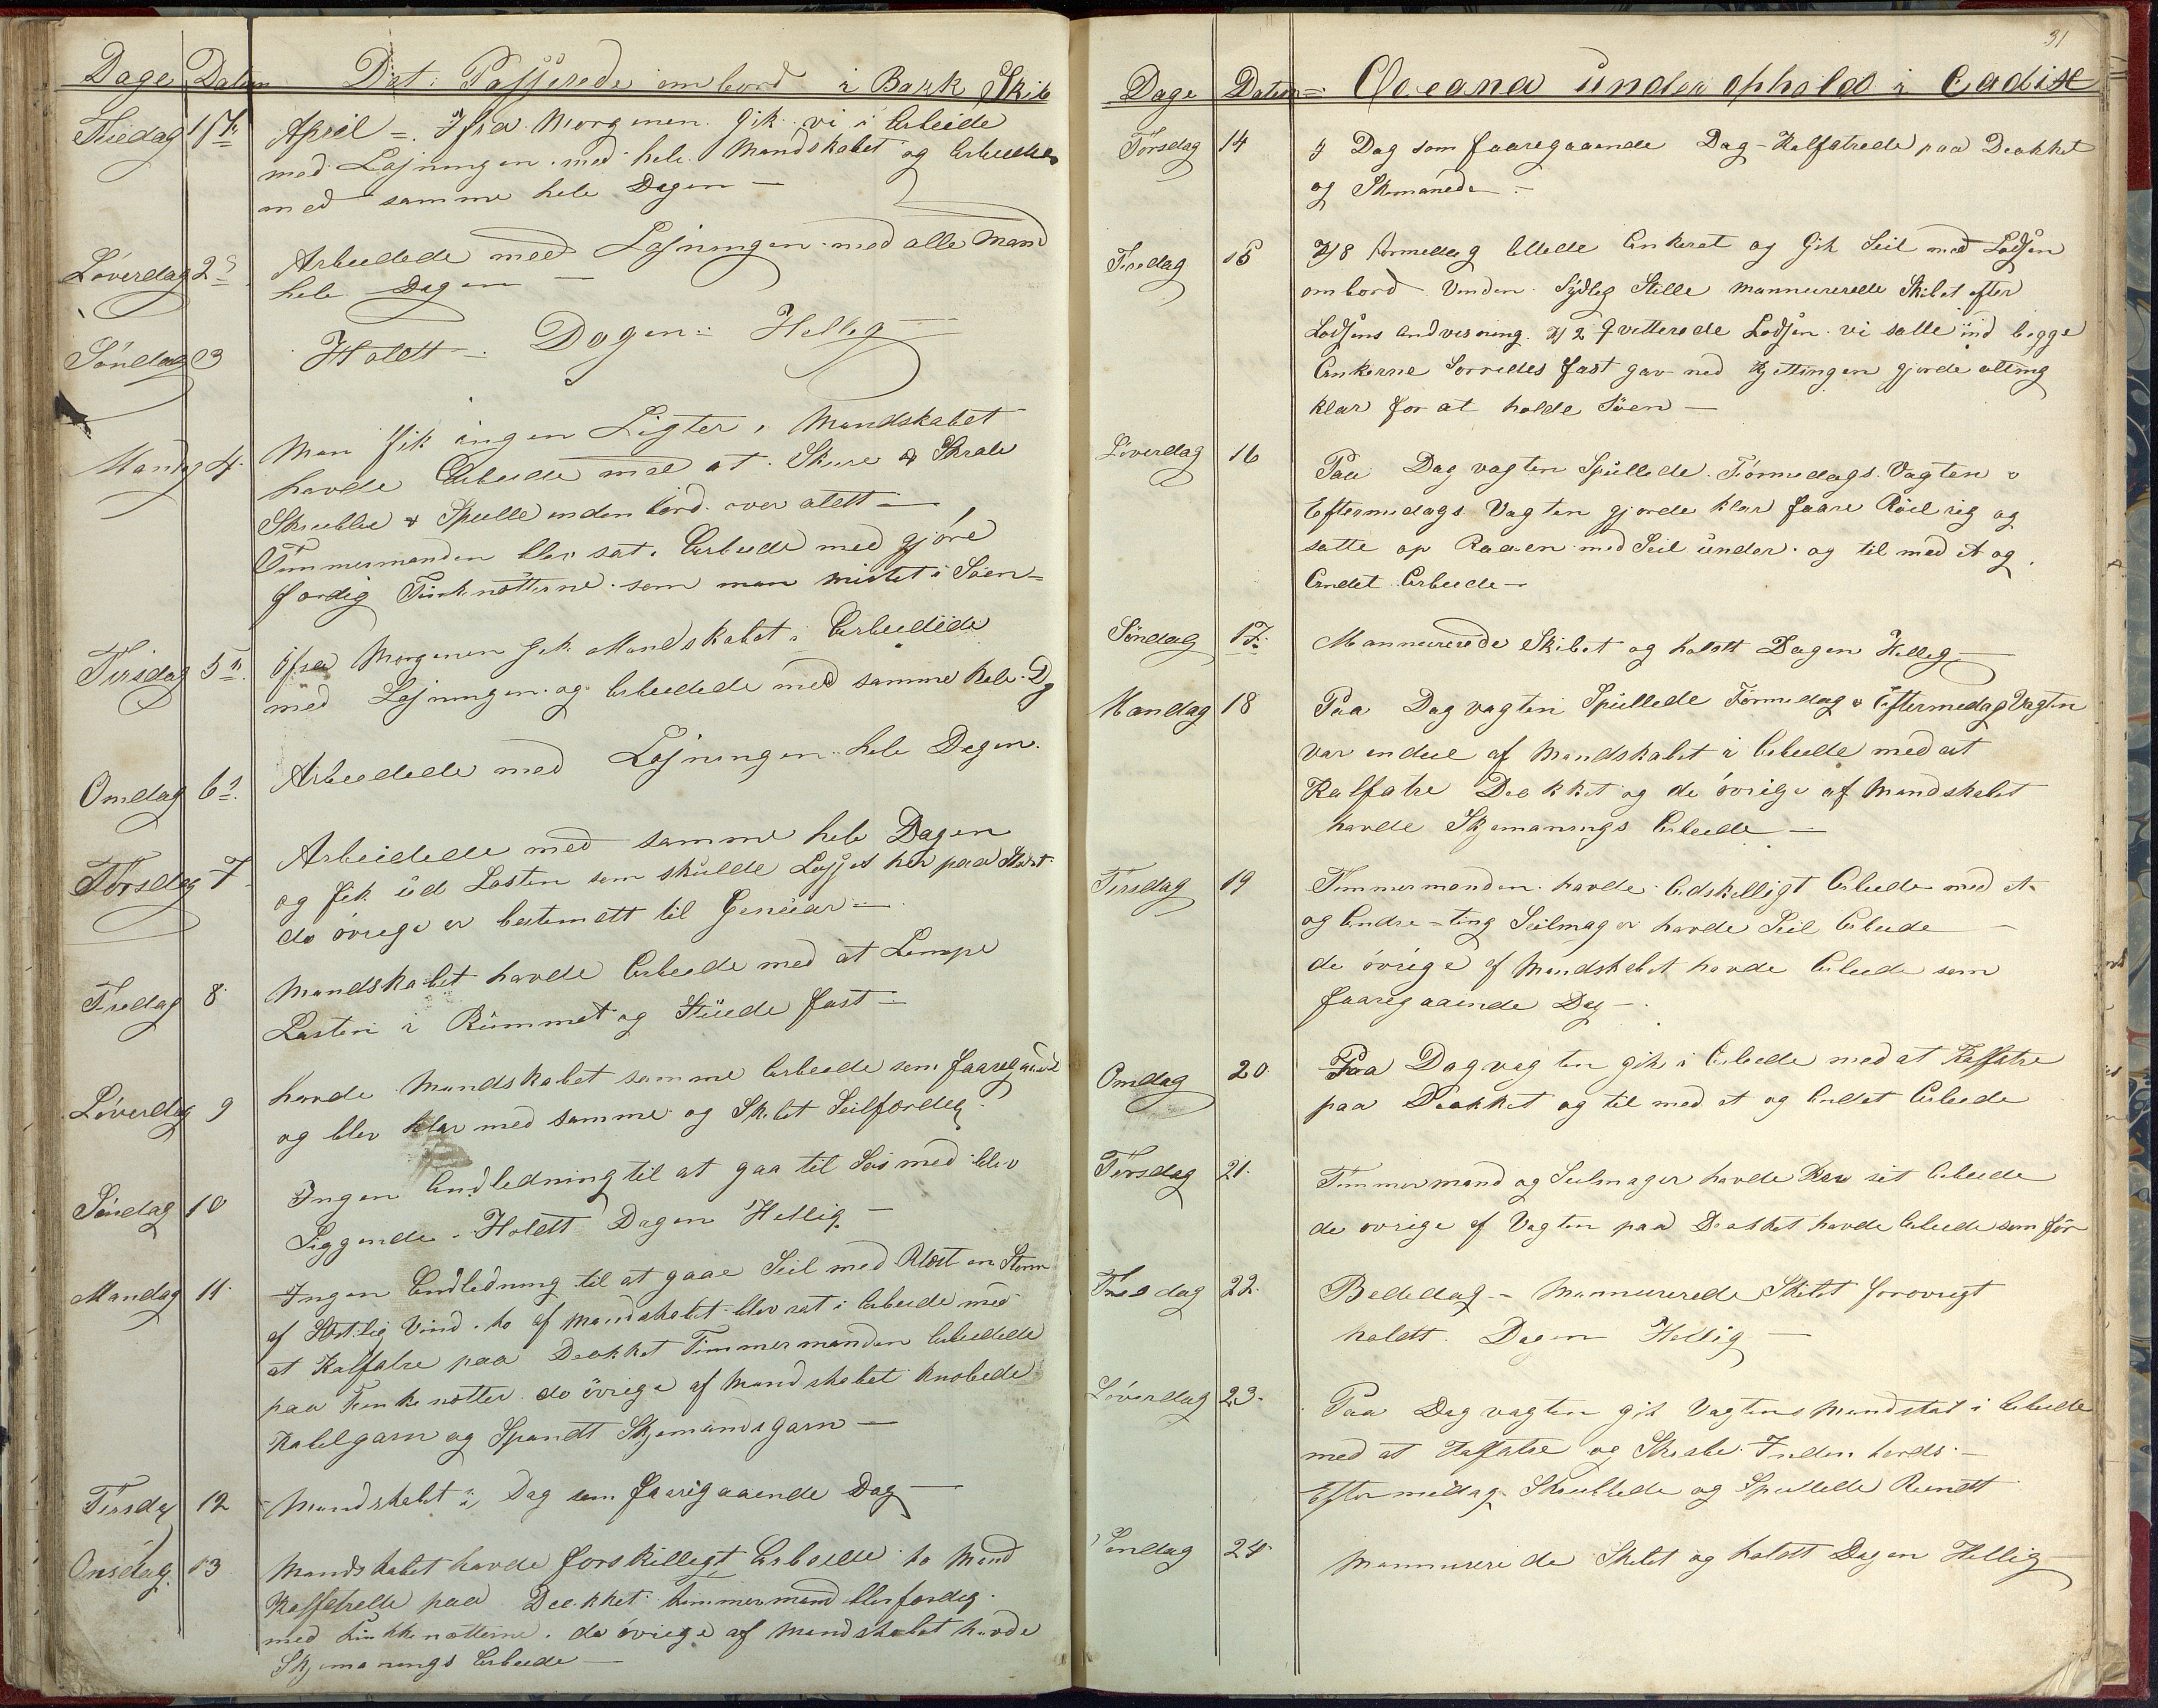 Dage Datum Det Passerede ombord i Bark Skib
Fredag 1ste April = Ifra Morgenen Gik vi i Arbeide
med Losningen med hele Mandskabet og Arbeidede
med samme hele Dagen —
Löverdag 2 Arbeidede med Losningen med alle Mand
hele Dagen —
Söndag 3 Holdt Dagen Hellig
Mandag 4 Man fik ingen Ligter, Mandskabet
havde Arbeide med at Skure & Skrabe
Skrubbe & Spulle inden bord over alett —
Timmermanden blev sat i Arbeide med gjöre
færdig Finknötterne som man mistet i Söen =
Tirsdag 5 Ifra Morgenen Gik Mandskabet i Arbeidede
med Losningen og Arbeidede med samme hele Dg
Onsdag 6 Arbeidede med Losningen hele Dagen.
Torsdag 7 Arbeidede med samme hele Dagen
og fik ud Lasten som skulde Losses her paa Stedet
de övrige er bestemdtt til Genuar —
Fredag 8 Mandskabet havde Arbeide med at Lempe
Lasten i Rummet og Stuede fast —
Löverdag 9 havde Mandskabet samme Arbeide som faaregaaende
og blev klar med samme og Skibet Seilfærdig
Söndag 10 Ingen Andledning til at gaa til Söis med blev
Liggende. Holdt Dagen Hellig —
Mandag 11 Ingen Andledning til at gaae Seil med Blæst en Storm
af Vestlig Vind. to af Mandskabet blev sat i Arbeide med
at Kalfatre paa Dækket Timmermanden Arbeidede
paa Finkenötter de övrige af Mandskabet knobede
Kabelgarn og Spandt Skjemandsgarn —
Tirsdag 12 Mandskabet i Dag som faaregaaende Dag —
Onsdag 13 Mandskabet havde forskilligt Arbeide to Mand
Kalfatrede paa Dækket timmermand blev færdig
med Finkkenötterne. de övrige af Mandskabet havde
Skjemanings Arbeide —
31
Dage Datum = Oceana under ophold i Cadix
Torsdag 14 I Dag som faaregaaende Dag - Kalfatrede paa Dækket
og Skemanede —
Fredag 15 Kl 8 Formedag lettede Ankeret og Gik Seil med Lodsen
ombord Vinden Sydlig Stille Mannuverede Skibet efter
Lodsens Andvisning. Kl 2 Qvitterede Lodsen. vi satte ind begge
Ankerne Sorredes fast gav ned Kjettingen gjorde alting
klar for at holde Söen —
Löverdag 16 Paa Dag vagten Spullede. Formedags Vagten &
Eftermedags Vagten gjorde klar faare Röil rig og
satte op Raaen med Seil under. og til med et og
Andet Arbeide —
Söndag 17 Mannuverede Skibet og holdt Dagen Hellig —
Mandag 18 Paa Dag vagten Spullede Formedag & Eftermedag Vagten
var endeel af Mandskabet i Arbeide med at
Kalfatre Dækket og de övrige af Mandskabet
havde Skjemanings Arbeide —
Tirsdag 19 Timmermanden havde Adskelligt Arbeide med et
og Andre-ting Seilmager havde Seil Arbeide —
de övrige af Mandskabet havde Arbeide som
faaregaaende Dag —.
Onsdag 20 Paa Dag vagten gik i Arbeide med at Kalfatre
paa Dækket og til med et og Andet Arbeide
Torsdag 21. Timmermand og Seilmager havde Hver sit Arbeide
de övrige af Vagten paa Dækket havde Arbeide som för
Fredag 22. Bededag — Mannuverede Skibet forövrigt
holdt Dagen Hellig —
Löverdag 23. Paa Dag vagten gik Vagtens Mandskab i Arbeide
med at Kalfatre og Skrabe Inden bords —
Eftermedag Skrubbede og Spullede Rundt
Söndag 24 Mannuverede Skibet og holdt Dagen Hellig —